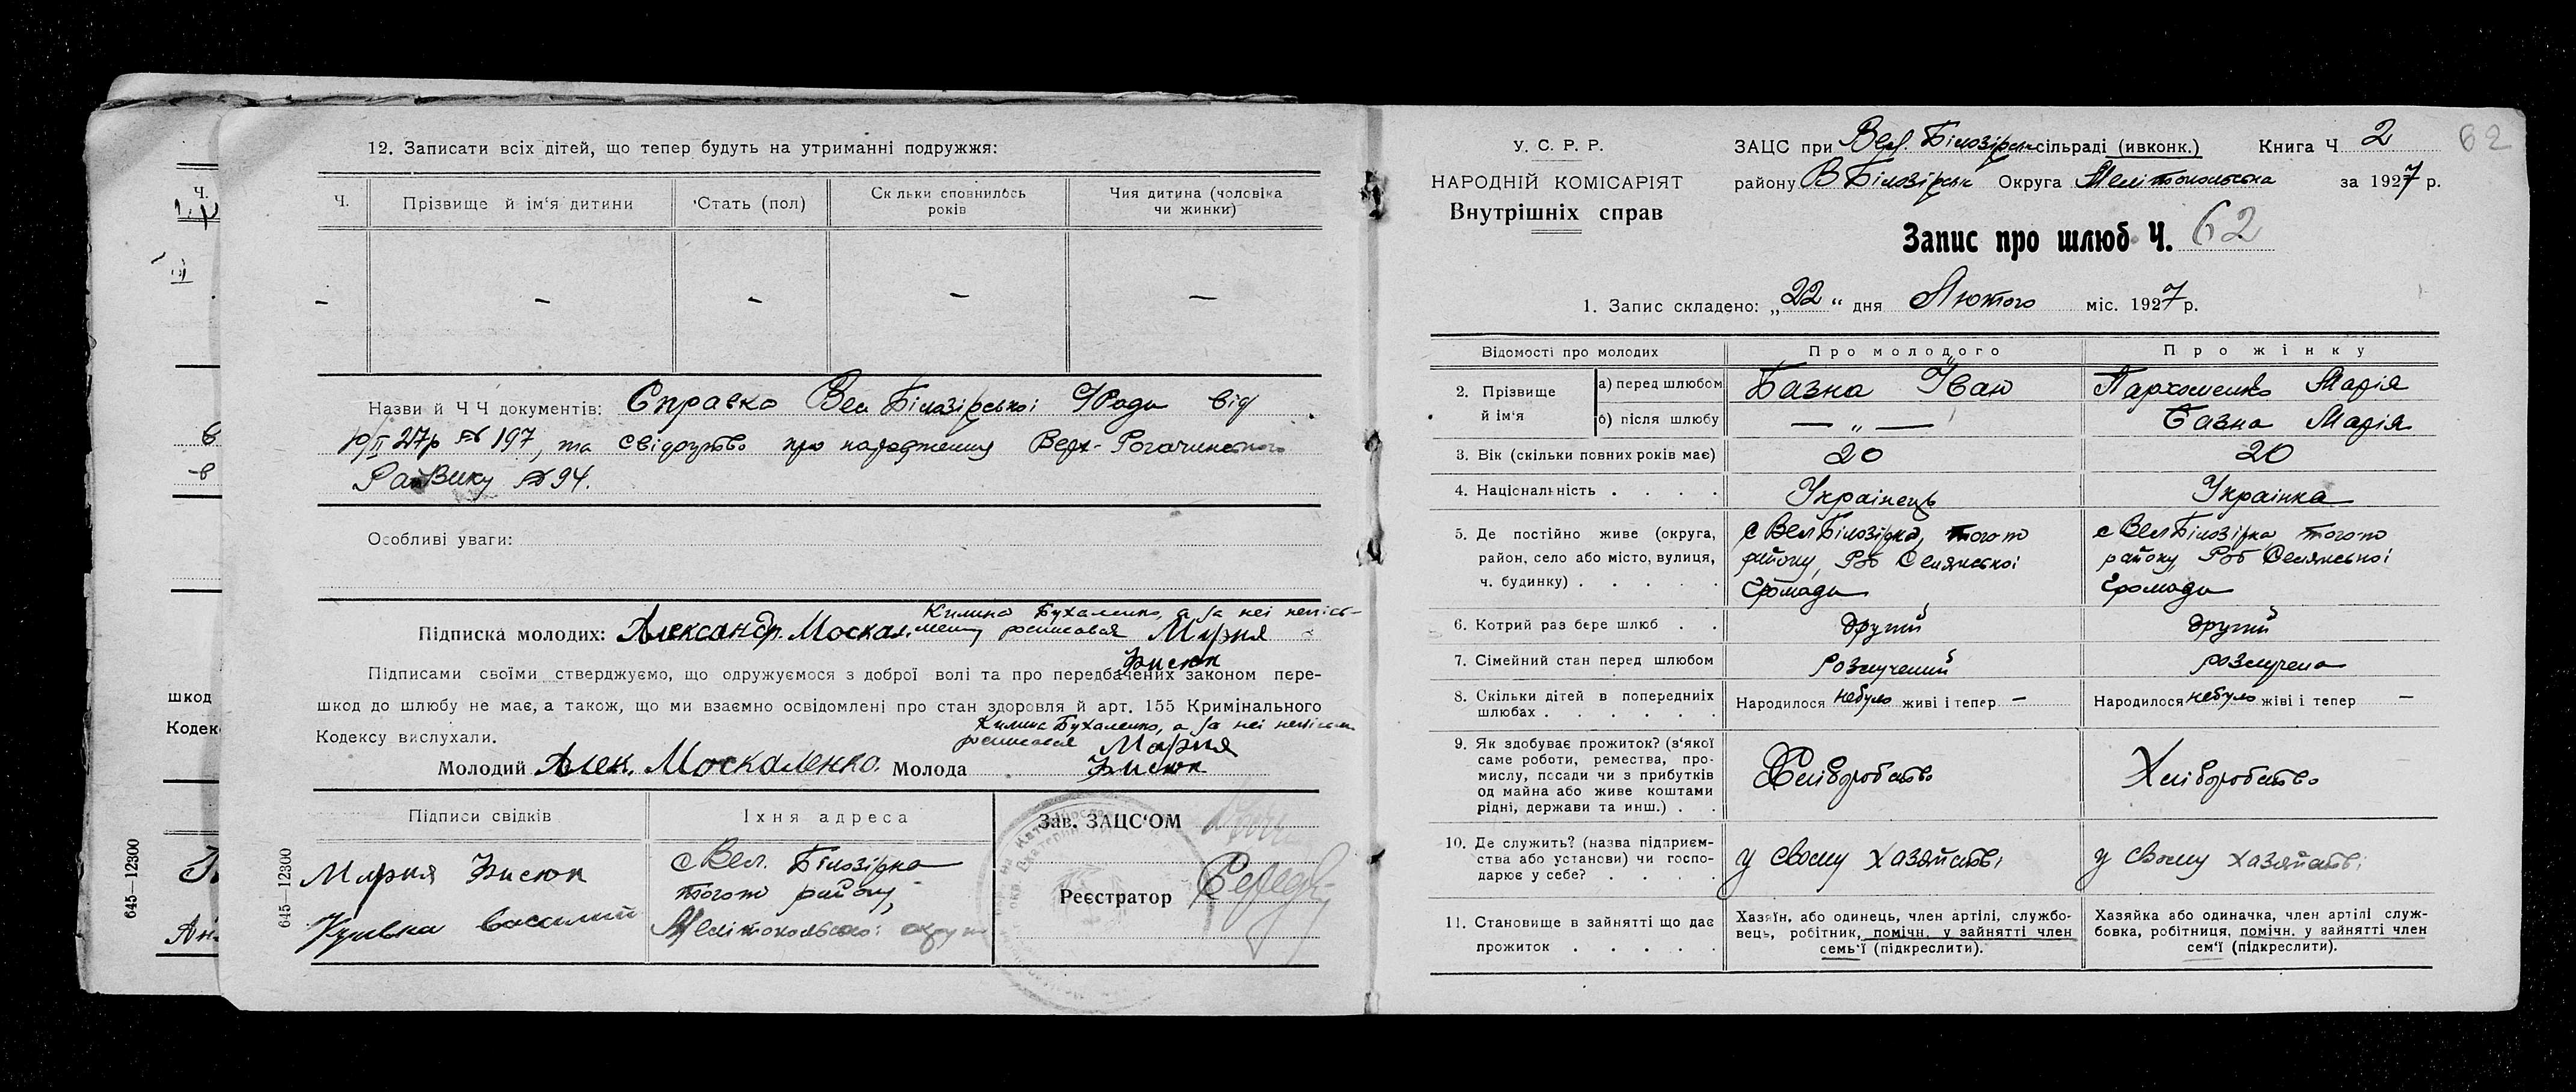 12. Записати всіх дітей, що тепер будуть на утриманні подружжя:
Ч. Прізвище й ім'я дитини Стать (пол) Скільки сповнилось років Чия дитина (чоловіка чи жинки)
– – – – –
Назви й Ч Ч документів: Справка Вел Білозірської Ради від
10/II 27р № 197, та свідоцтво про народження Верх-Рогачинського
РайВику № 94.
Особливі уваги:
Килина Бухаленко, а за неї непись-
Підписка молодих: Александр Москал. менну росписався Мария
Зисюк
Підписами своїми стверджуємо, що одружуємося з доброї волі та про передбачених законом пере-
шкод до шлюбу не має, а також, що ми взаємно освідомлені про стан здоровля й арт. 155 Кримінального
Кодексу вислухали.
Килина Бухаленко, а за неї неписьм
росписався Мария
Молодий Алек. Москаленко. Молода Зисюк
Підписи свідків Їхня адреса
Мария Зисюк
василий
с Вел. Білозірка
того ж району,
Мелітопольської округи
Зав. ЗАЦС'ОМ
Реєстратор
645—12300
Ч.
шкод
Кодек
645—12300
У. С. Р. Р.
НАРОДНІЙ КОМІСАРІЯТ
Внутрішніх справ
ЗАЦС при Вел. Білозірск сільраді (ивконк.) Книга Ч 2
62
району В Білозірськ Округа Мелітопольська за 1927 р.
Запис про шлюб Ч. 62
1. Запис складено: „22“ дня Лютого міс. 1927 р.
Відомості про молодих Про молодого Про жінку
2. Прізвище й ім'я
а) перед шлюбом Базна Іван Пархоменко Марія
б) після шлюбу — „ — Базна Марія
3. Вік (скільки повних років має) 20 20
4. Національність . . . . Українець Українка
5. Де постійно живе (округа,
район, село або місто, вулиця,
ч. будинку) . . . . .
с Вел Білозірка, того ж
району, Роб Селянської
Громади
с Вел Білозірка того ж
району, Роб Селянської
Громади
6. Котрий раз бере шлюб . . другий другий
7. Сімейний стан перед шлюбом розлучений розлучена
8. Скільки дітей в попередниіх
шлюбах . . . . . .
Народилося небуло живі і тепер –
Народилося небуло жіві і тепер –
9. Як здобуває прожиток? (з'якої
саме роботи, ремества, про-
мислу, посади чи з прибутків
од майна або живе коштами
рідні, держави та инш.) . .
Хліборобство
Хліборобство
10. Де служить? (назва підприєм-
ства або установи) чи госпо-
дарює у себе? . . . .
у свому хазяйстві
у свому хазяйстві
11. Становище в зайнятті що дає
прожиток . . . . .
Хазяїн, або одинець, член артілі, службо-
вець, робітник, помічн. у зайнятті член
семь'ї (підкреслити).
Хазяйка або одиначка, член артілі служ-
бовка, робітниця, помічн. у зайнятті член
сем'ї (підкреслити).